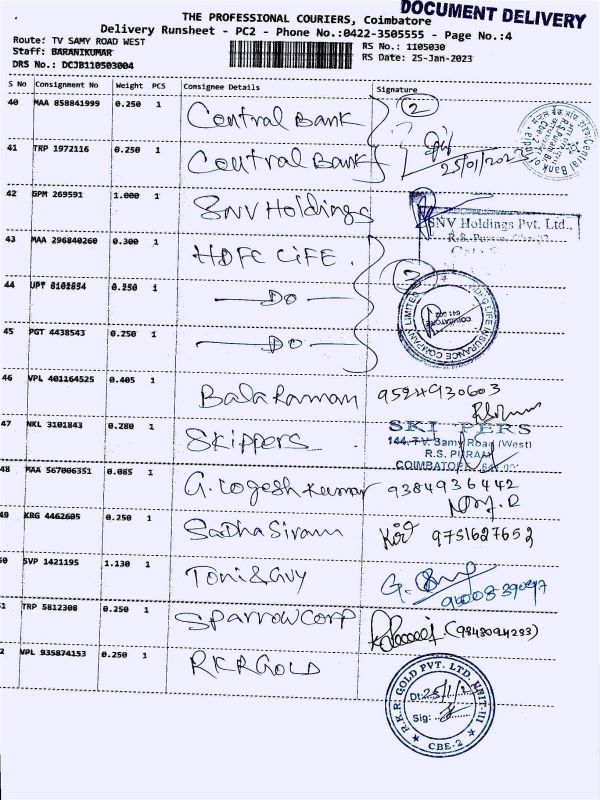 DOCUMENT DELIVERY
THE PROFESSIONAL COURIERS, Coimbatore
Delivery Runsheet - PC2 - Phone No.:0422-3505555 - Page No.:4
Route: TV SAMY ROAD WEST
Staff: BARANIKUMAR
DRS No.: DCJB110503004
RS No.: 1105030
RS Date: 25-Jan-2023
S No Consignment No Weight PCS Consignee Details Signature
40 MAA 858841999 0.250 1 Central Bank 2
41 TRP 1972116 0.250 1 Central Bank 25/01/2023
42 GPM 269591 1.000 1 SNV Holdings SNV Holdings Pvt. Ltd.,
43 MAA 296840260 0.300 1 HDFC LIFE. 3
44 UPT 8102854 0.250 1 —DO—
45 PGT 4438543 0.250 1 —DO—
LIFE INSURANCE COMPANY LIMITED
COIMBATORE
641 002
46 VPL 401164525 0.405 1 Bala Raman 9524930603
47 NKL 3101843 0.280 1 Skippers
144, T.V. Samy Road (West)
R.S. PURAM
COIMBATORE
48 MAA 567006351 0.085 1 G. Logesh Kumar 9384936442
49 KRG 4462605 0.250 1 SaDha Sivam 9751627652
50 SVP 1421195 1.130 1 Toni & Guy
51 TRP 5812308 0.250 1 Sparrow Corp (9843094233)
52 VPL 935874153 0.250 1 RKR GOLD
R.K.R. GOLD PVT. LTD. UNIT-III
Dt: 25/1/2
Sig:
CBE-2